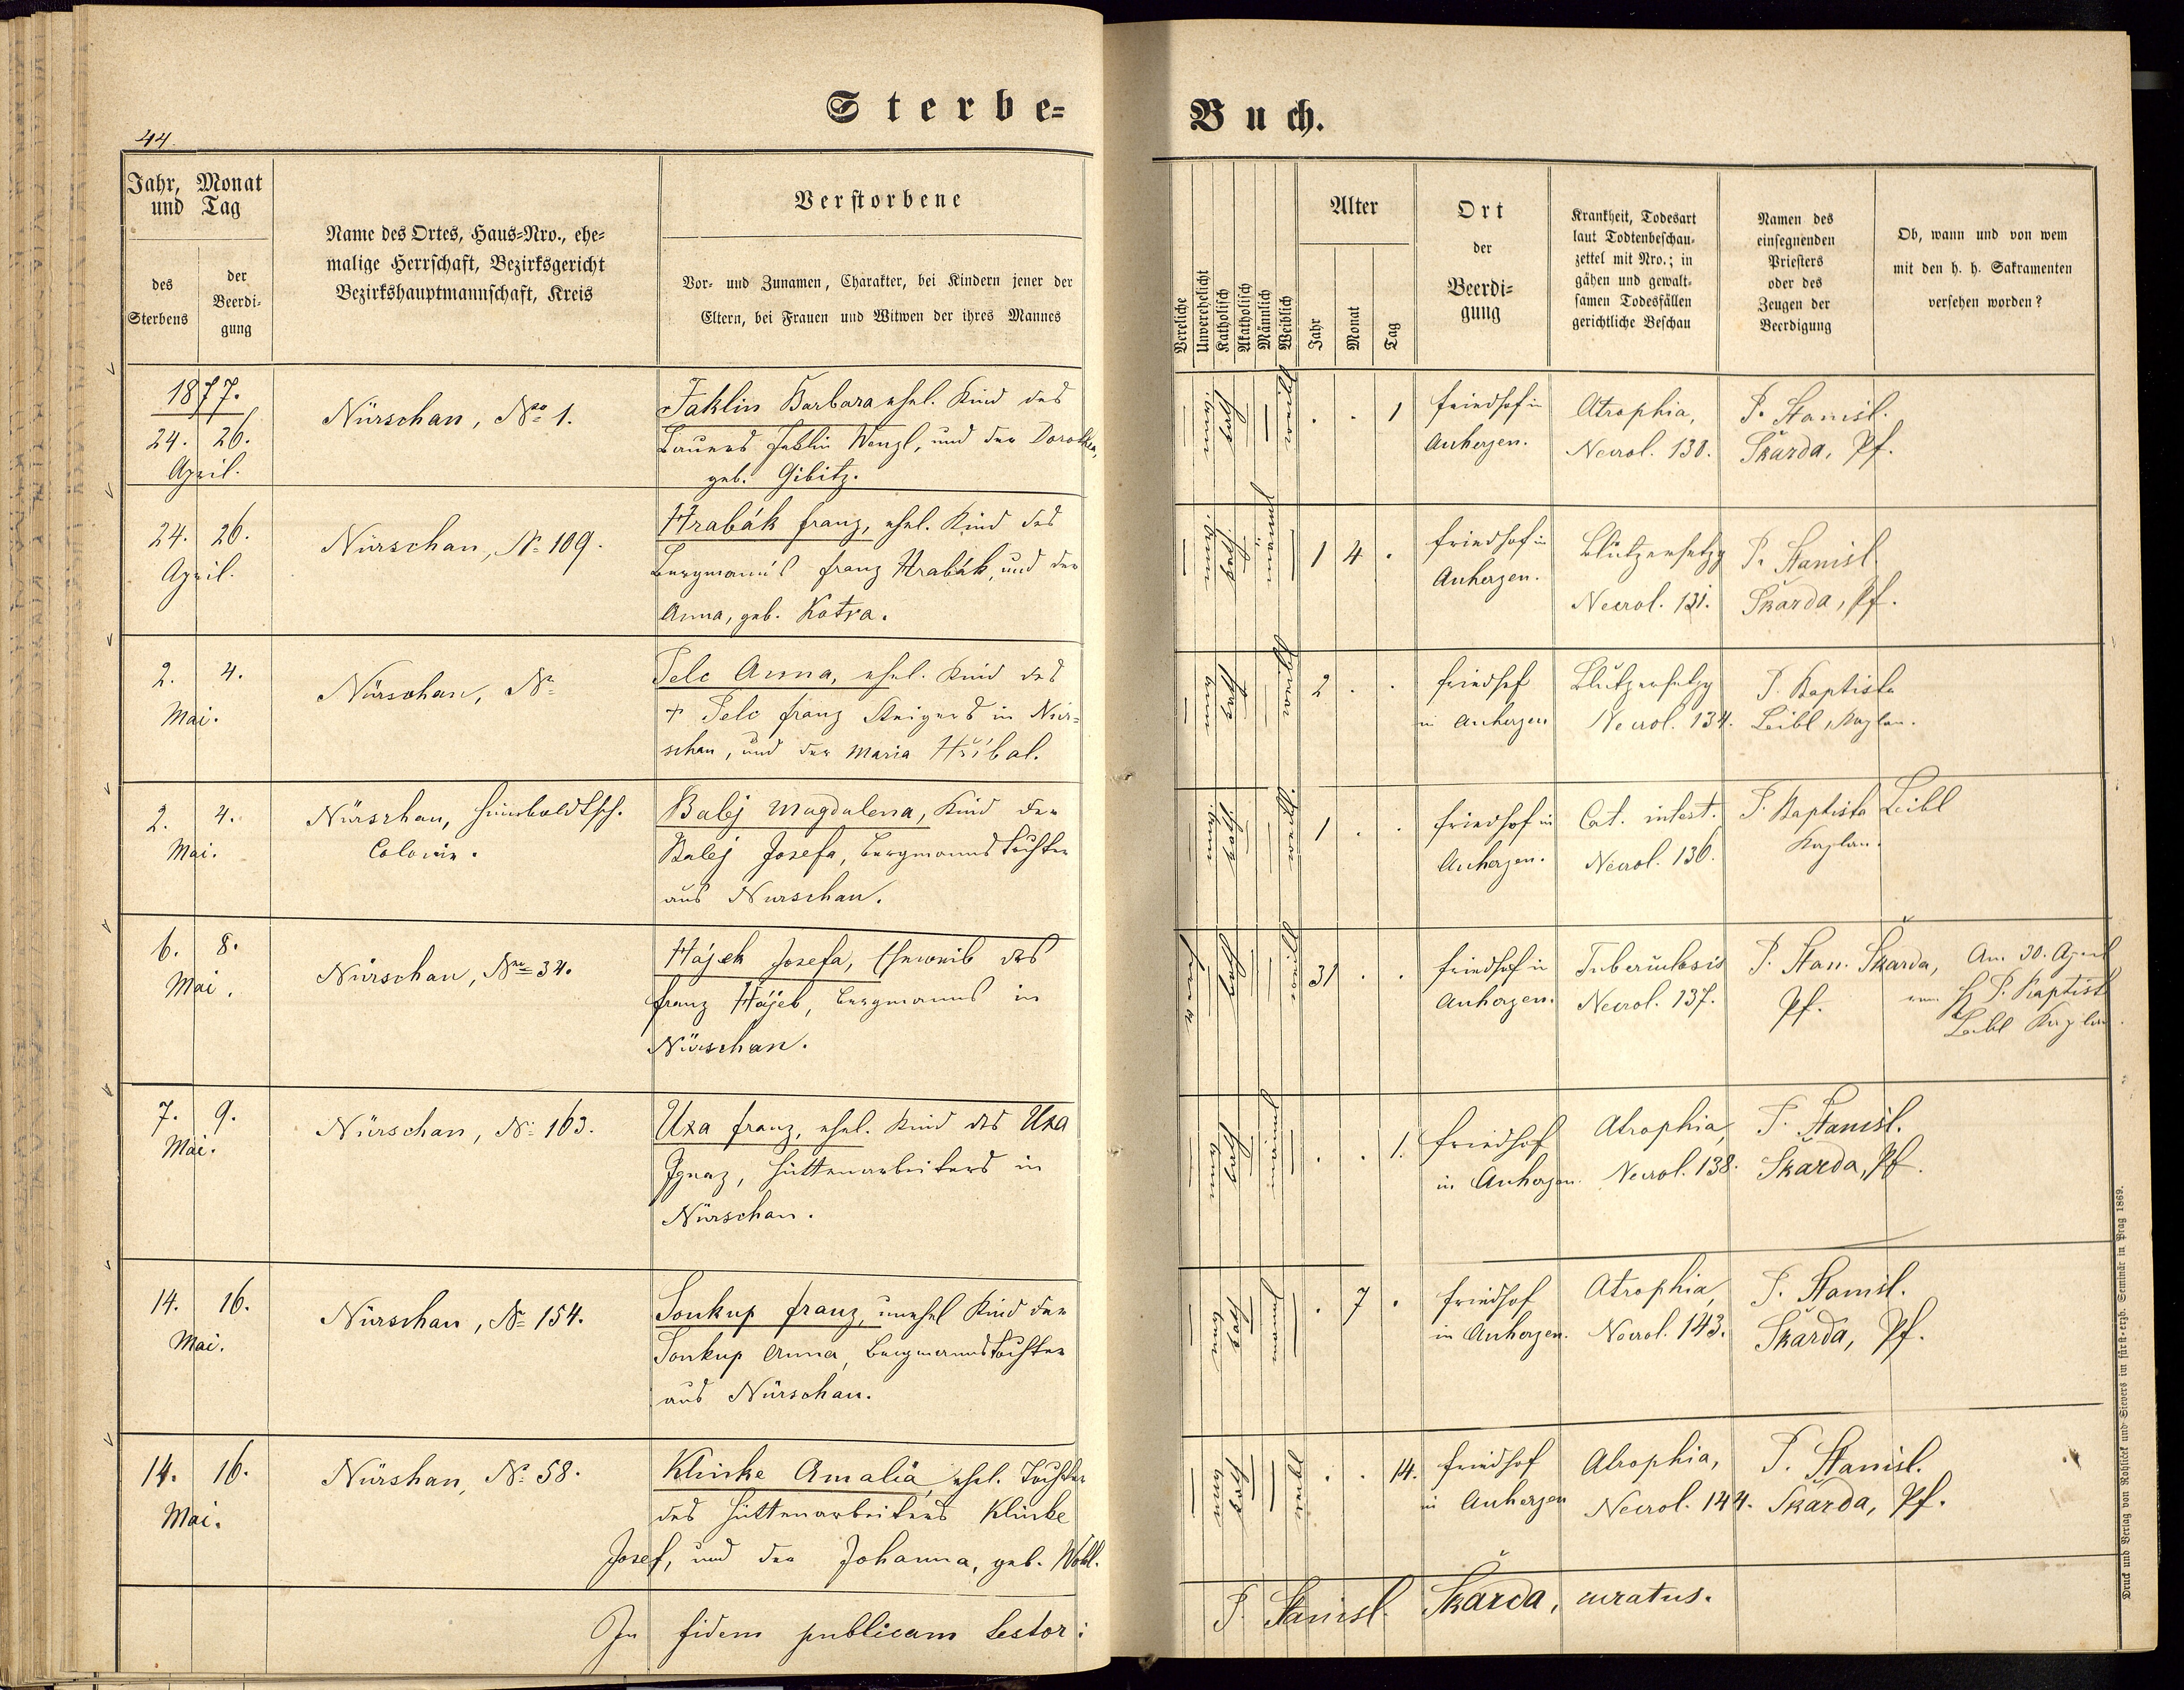 Sterbe=
Buch.
44.
Jahr, Monat
und Tag
des
Sterbens
der
Beerdi=
gung
Name des Ortes, Haus=Nro., ehe=
malige Herrschaft, Bezirksgericht
Bezirkshauptmannschaft, Kreis
Verstorbene
Vor= und Zunamen, Charakter, bei Kindern jener der
Eltern, bei Frauen und Witwen der ihres Mannes
Vereliche
Unverehelicht
Katholisch
Akatholisch
Männlich
Weiblich
Alter
Jahr
Monat
Tag
Ort
der
Beerdi=
gung
Krankheit, Todesart
laut Todtenbeschau=
zettel mit Nro.; in
gähen und gewalt=
samen Todesfällen
gerichtliche Beschau
Namen des
einsegnenden
Priesters
oder des
Zeugen der
Beerdigung
Ob, wann und von wem
mit den h. h. Sakramenten
versehen worden?
1877.
24. 26.
April.
Nürschan, No 1.
Faklin Barbara ehel. Kind des
Bauers Faklin Wenzl, und der Dorothea,
geb. Gibitz.
. . 1
Friedhof in
Auherzen.
Atrophia,
Necrol. 130.
P. Stanisl.
Škarda, Pf.
24. 26.
April.
Nürschan, N= 109.
Hrabák Franz, ehel. Kind des
Bergmann's Franz Hrabák, und der
Anna, geb. Kotva.
1 4 .
Friedhof in
Auherzen.
Blutzersetzg
Necrol. 131.
P. Stanisl.
Škarda, Pf.
2. 4.
Mai.
Nürschan, N=
Telc Anna, ehel. Kind des
+ Telc Franz Steigers in Nür=
schan, und der Maria Hříbal.
2 . .
Friedhof
in Auherzen
Blutzersetzg
Necrol. 134.
P. Baptista
Leibl, Kaplan.
2. 4.
Mai.
Nürschan, Humboldtsch.
Colonie.
Balej Magdalena, Kind der
Balej Josefa, Bergmannstochter
aus Nürschan.
1 . .
Friedhof in
Auherzen.
Cat. intest.
Necrol. 136.
P. Baptista Leibl
Kaplan.
6. 8.
Mai.
Nürschan, Nro= 34.
Hájek Josefa, Eheweib des
Franz Hájek, Bergmanns in
Nürschan.
31 . .
Friedhof in
Auherzen.
Tuberculosis
Necrol. 137.
P. Stan. Škarda,
Pf.
Am 30. April
vom H. P. Baptist
Leibl Kaplan.
7. 9.
Mai.
Nürschan, N= 163.
Uxa Franz, ehel. Kind des Uxa
Ignaz, Hüttenarbeiters in
Nürschan.
. . 1.
Friedhof
in Auherzen.
Atrophia,
Necrol. 138.
P. Stanisl.
Škarda, Pf.
14. 16.
Mai.
Nürschan, N= 154.
Soukup Franz, unehel Kind der
Soukup Anna, Bergmannstochter
aus Nürschan.
. 7 .
Friedhof
in Auherzen.
Atrophia,
Necrol. 143.
P. Stanisl.
Škarda, Pf.
14. 16.
Mai.
Nürshan, N= 58.
Klinke Amalia, ehel. Tochter
des Hüttenarbeiters Klinke
Josef, und der Johanna, geb. Wohl.
. . 14.
Friedhof
in Auherzen
Atrophia,
Necrol. 144.
P. Stanisl.
Škarda, Pf.
In fidem publicam testor:
P. Stanisl. Škarda, curatus.
Druck und Verlag von Rohlicek und Sievers im fürst=erzb. Seminär in Prag 1869.